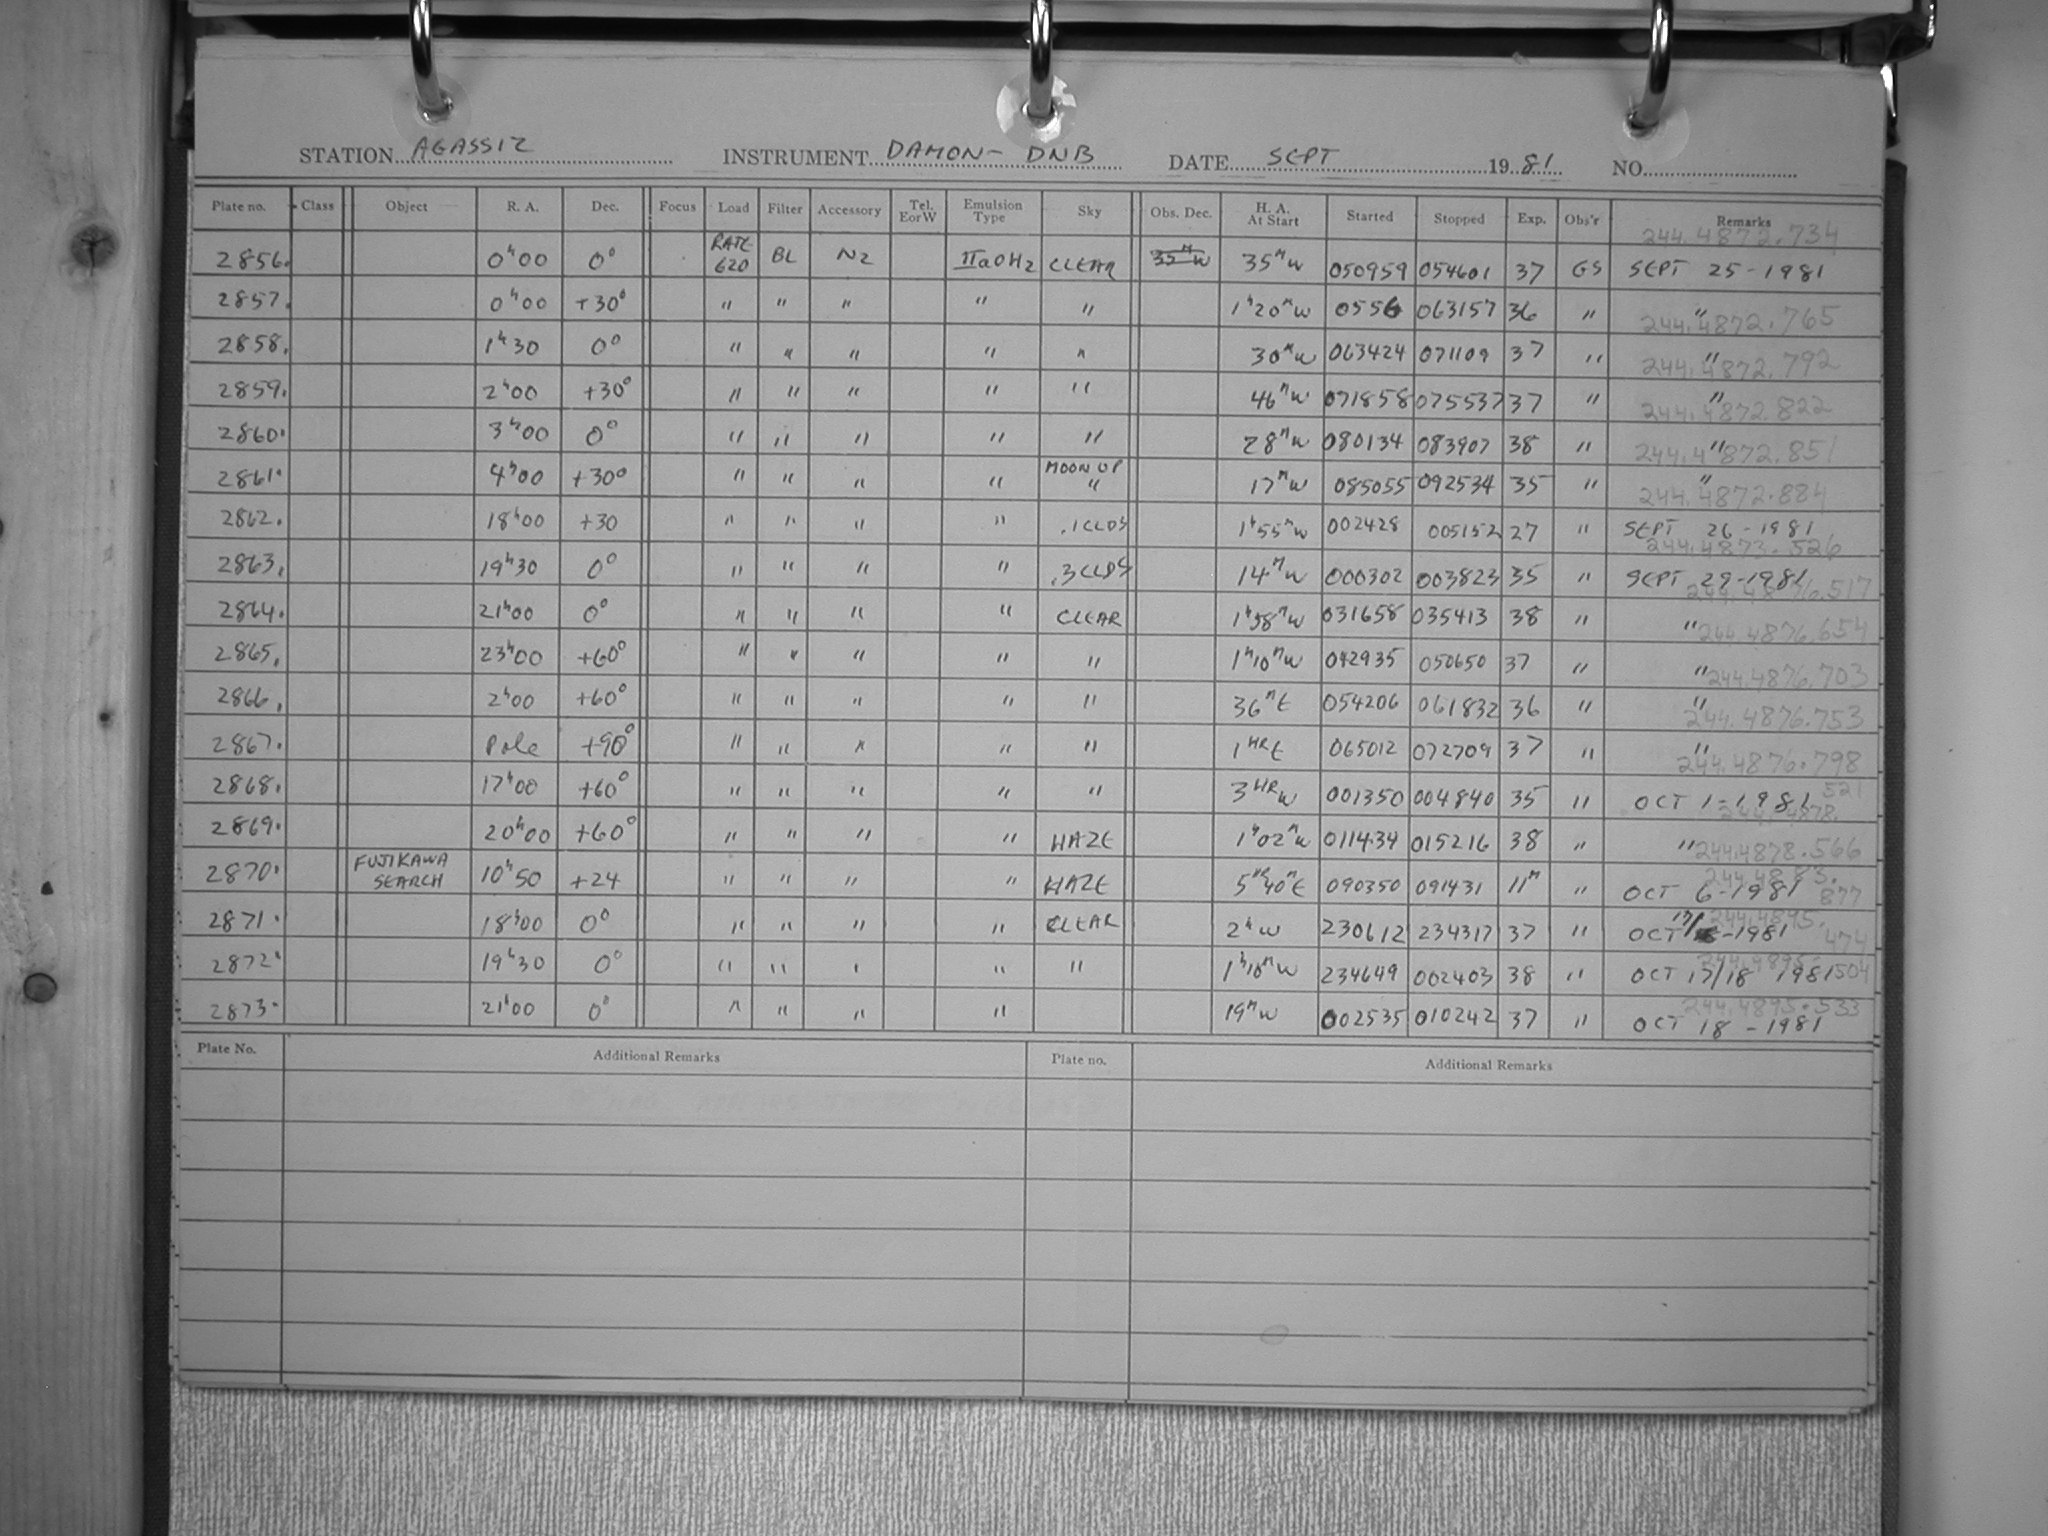 STATION AGASSIZ INSTRUMENT DAMON- DNB DATE SEPT 1981 NO.
Plate no. Class Object R. A. Dec. Focus Load Filter Accessory Tel. E or W Emulsion Type Sky Obs. Dec. H. A. At Start Started Stopped Exp. Obs'r Remarks
244.4872.734
2856. 0ʰ00 0° RATE 620 BL N2 IIaOH2 CLEAR 35ᵐW 35ᵐW 050959 054601 37 GS SEPT 25-1981
2857. 0ʰ00 +30° " " " " " 1ʰ20ᵐW 0556 063157 36 " " 244.4872.765
2858. 1ʰ30 0° " " " " " 30ᵐW 063424 071109 37 " " 244.4872.792
2859. 2ʰ00 +30° " " " " " 46ᵐW 071858 075537 37 " " 244.4872.822
2860. 3ʰ00 0° " " " " " 28ᵐW 080134 083907 38 " " 244.4872.851
2861. 4ʰ00 +30° " " " " MOON UP " 17ᵐW 085055 092534 35 " " 244.4872.884
2862. 18ʰ00 +30 " " " " .1CLDS 1ʰ55ᵐW 002428 005152 27 " SEPT 26-1981 244.4873.526
2863. 19ʰ30 0° " " " " .3CLDS 14ᵐW 000302 003823 35 " SEPT 29-1981 244.4876.517
2864. 21ʰ00 0° " " " " CLEAR 1ʰ58ᵐW 031658 035413 38 " " 244.4876.654
2865. 23ʰ00 +60° " " " " " 1ʰ10ᵐW 042935 050650 37 " " 244.4876.703
2866. 2ʰ00 +60° " " " " " 36ᵐE 054206 061832 36 " " 244.4876.753
2867. Pole +90° " " " " " 1HRE 065012 072709 37 " " 244.4876.798
2868. 17ʰ00 +60° " " " " " 3HRW 001350 004840 35 " OCT 1-1981 244.4878.521
2869. 20ʰ00 +60° " " " " HAZE 1ʰ02ᵐW 011434 015216 38 " " 244.4878.566
2870. FUJIKAWA SEARCH 10ʰ50 +24 " " " " HAZE 5HR40ᵐE 090350 091431 11ᵐ " OCT 6-1981 244.4883.877
2871. 18ʰ00 0° " " " " CLEAR 2ʰW 230612 234317 37 " OCT 17/18-1981 244.4895.474
2872. 19ʰ30 0° " " ' " " 1ʰ10ᵐW 234649 002403 38 " OCT 17/18 1981 244.4895.504
2873. 21ʰ00 0° " " " " 19ᵐW 002535 010242 37 " OCT 18-1981 244.4895.533
Plate No. Additional Remarks Plate no. Additional Remarks